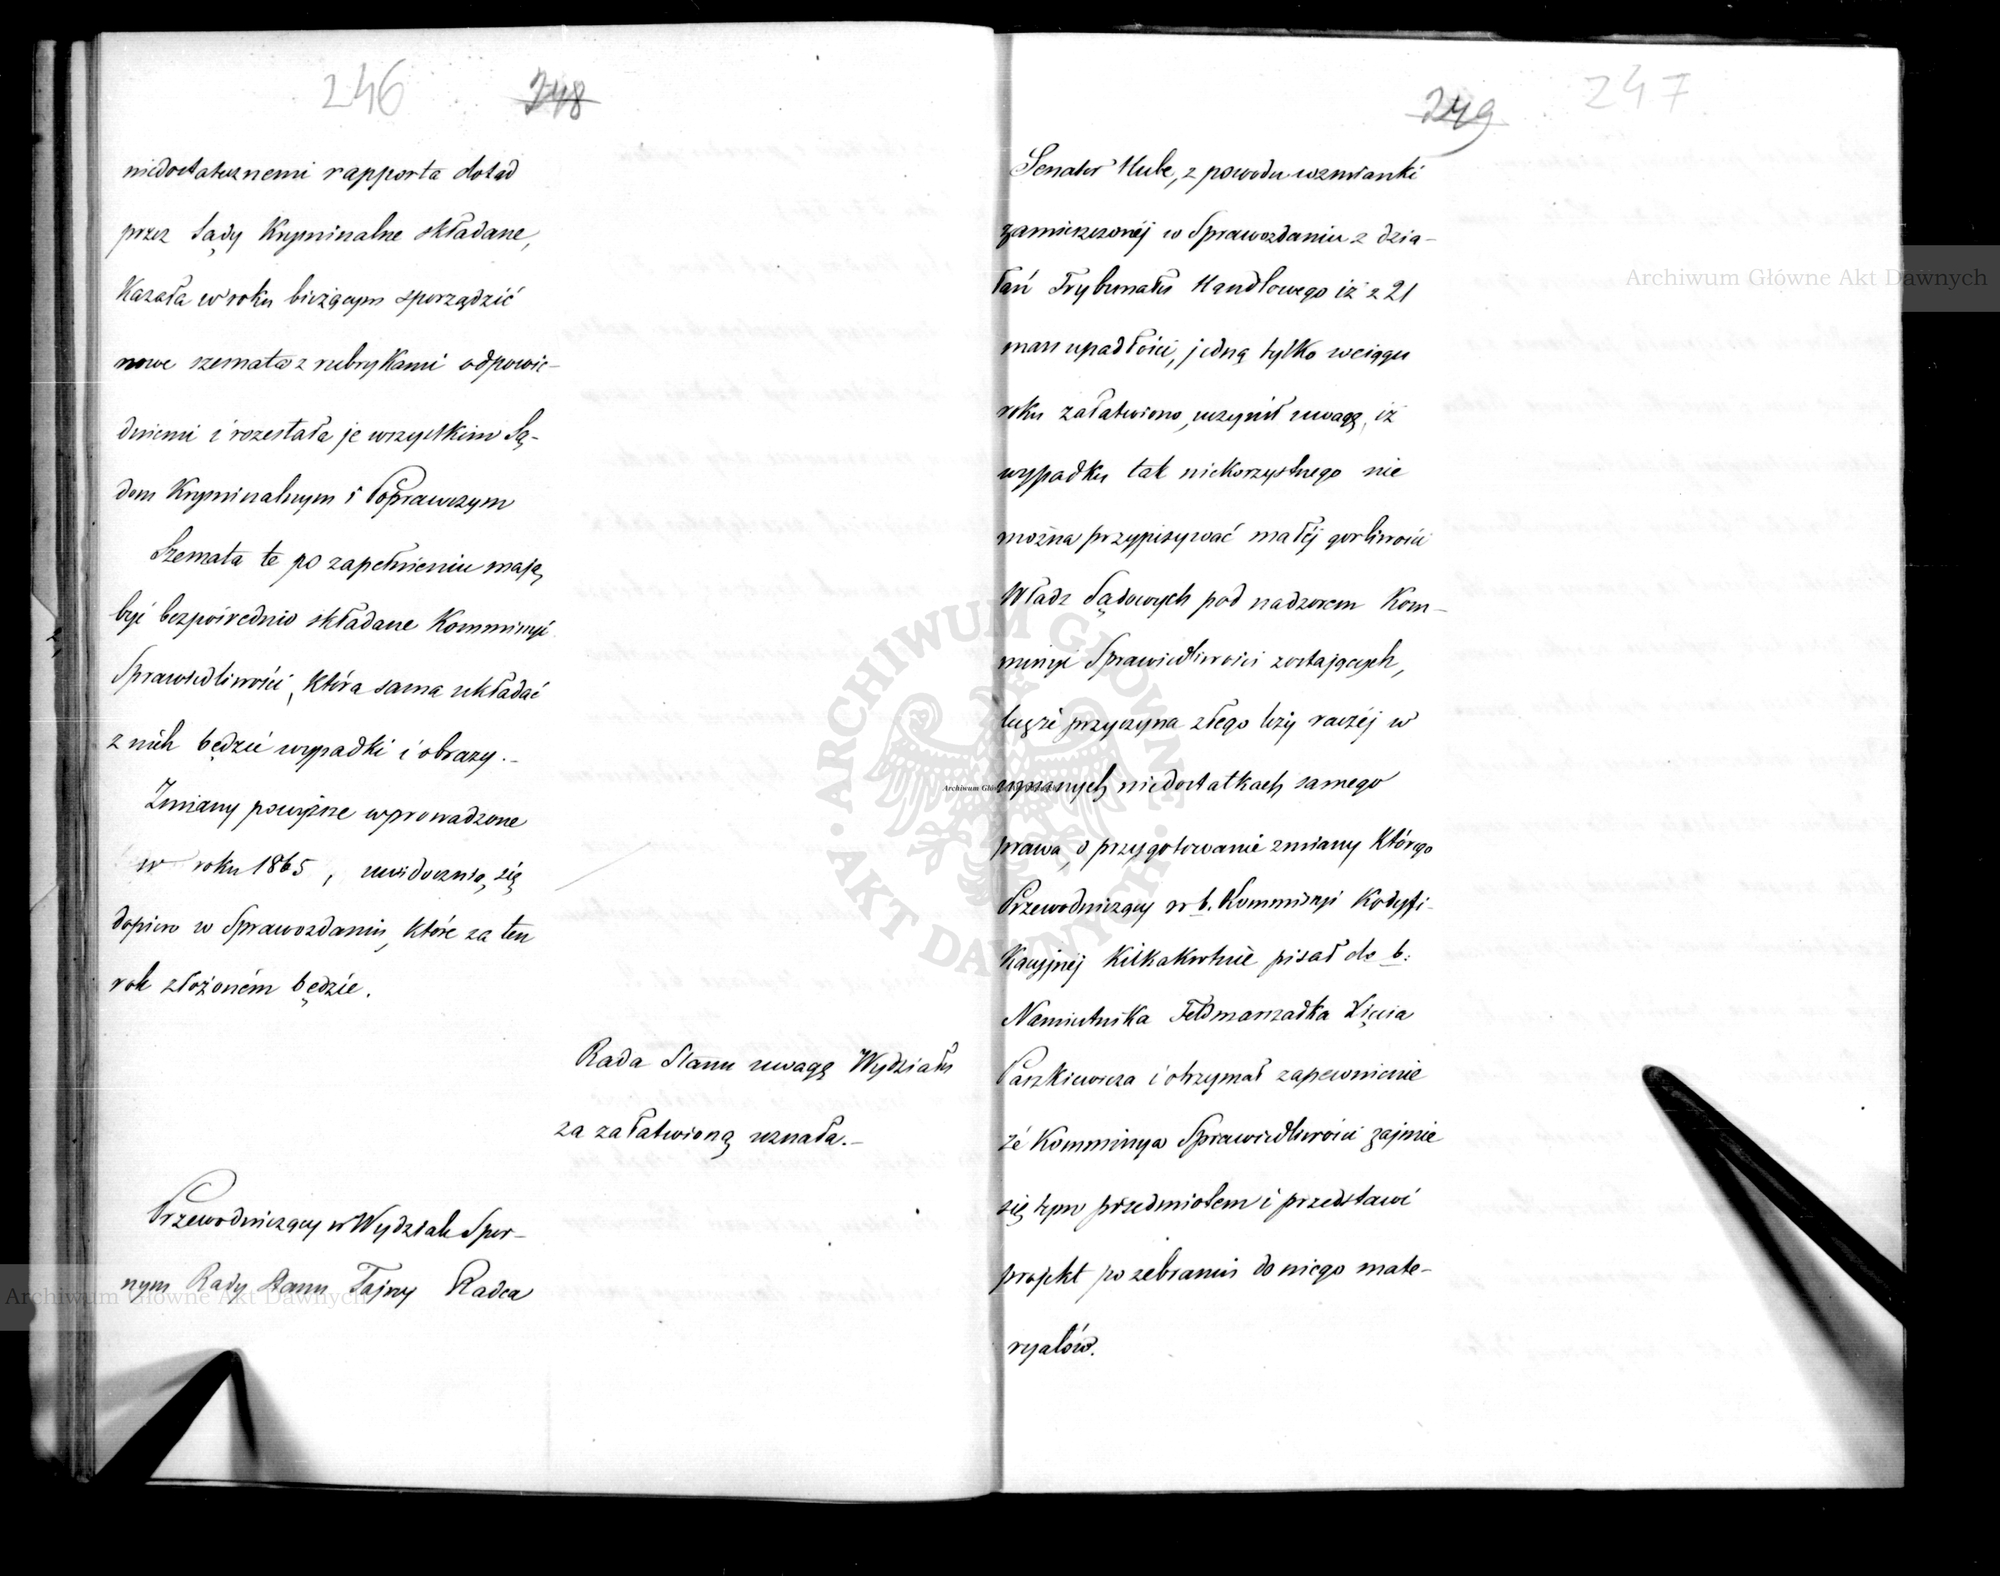 246 248
niedostatecznemi rapporta dotąd
przez Sądy Kryminalne składane,
Kazała w roku bieżącym sporządzić
nowe szemata z rubrykami odpowie-
dniemi i rozesłała je wszystkim Są-
dom Kryminalnym i Poprawczym
Szemata te po zapełnieniu mają
być bezpośrednio składane Kommissyi
Sprawiedliwości, która sama układać
z nich będzie wypadki i obrazy.-
Zmiany powyższe wprowadzone
w roku 1865, uwidocznią się
dopiero w Sprawozdaniu, które za ten
rok złożoném będzie.
Rada Stanu uwagę Wydziału
za załatwioną uznała.-
Przewodniczący w Wydziale Spor-
nym Rady Stanu Tajny Radca
249 247
Senator Hube, z powodu wzmianki
zamieszczonéj w Sprawozdaniu z dzia-
łań Trybunału Handlowego iż z 21
mass upadłości, jedną tylko w ciągu
roku załatwiono, uczynił uwagę, iż
wypadku tak niekorzystnego nie
można przypisywać małéj gorliwości
Władz Sądowych pod nadzorem Kom-
missyi Sprawiedliwości zostających,
lecz że przyczyna złego leży raczéj w
niedostatkach samego
prawa, o przygotowanie zmiany którego
Przewodniczący w b. Kommissyi Kodyfi-
Kacyjnéj Kilkakrotnie pisał do b.
Namiestnika Feldmarszałka Xięcia
Paszkiewicza i otrzymał zapewnienie
że Kommissya Sprawiedliwości zajmie
się tym przedmiotem i przedstawi
projekt po zebraniu do niego mate-
ryałów.
Archiwum Główne Akt Dawnych
Archiwum Główne Akt Dawnych
ARCHIWUM GŁÓWNE AKT DAWNYCH